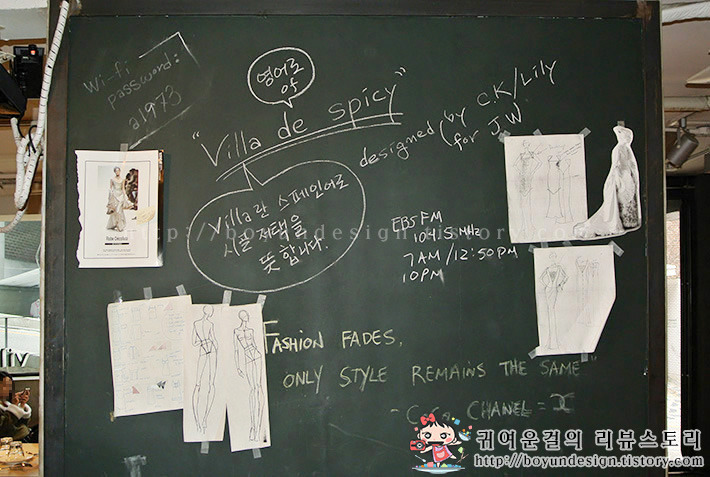 Wi-fi
password:
a1973
영어로
양
"Villa de spicy"
designed (by C.K/Lily
for J.W
Villa란 스페인어로
시골 저택을
뜻합니다.
EBS FM
104.5 MHz
7AM/12:50PM
10PM
FASHION FADES,
ONLY STYLE REMAINS THE SAME"
CHANEL =
http://boyundesign.tistory.com
귀여운걸의 리뷰스토리
http://boyundesign.tistory.com